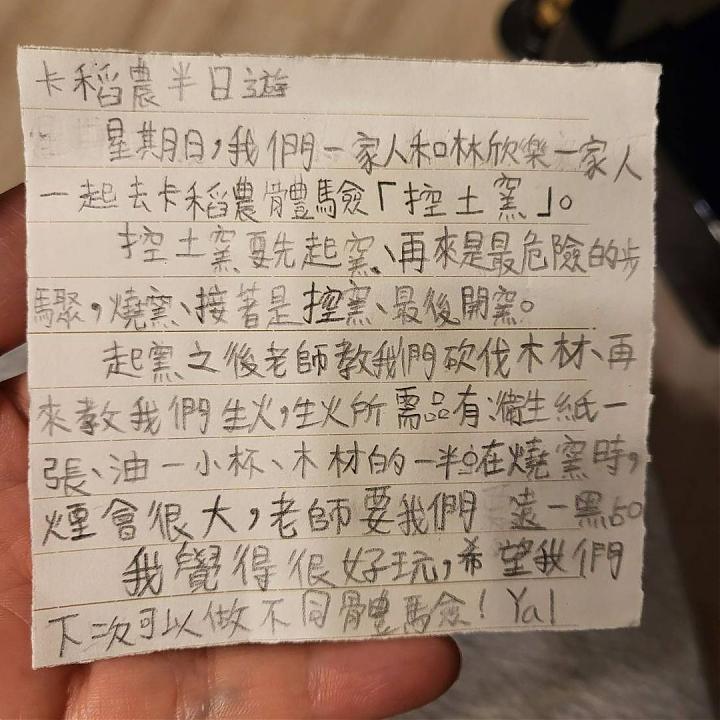 卡稻農半日遊
星期日，我們一家人和林欣樂一家人
一起去卡稻農體驗「控土窯」。
控土窯要先起窯、再來是最危險的步
驟，燒窯、接著是控窯、最後開窯。
起窯之後老師教我們砍伐木材、再
來教我們生火，生火所需品有：衛生紙一
張、油一小杯、木材的一半。在燒窯時，
煙會很大，老師要我們遠一點。
我覺得很好玩，希望我們
下次可以做不同體驗！Ya!